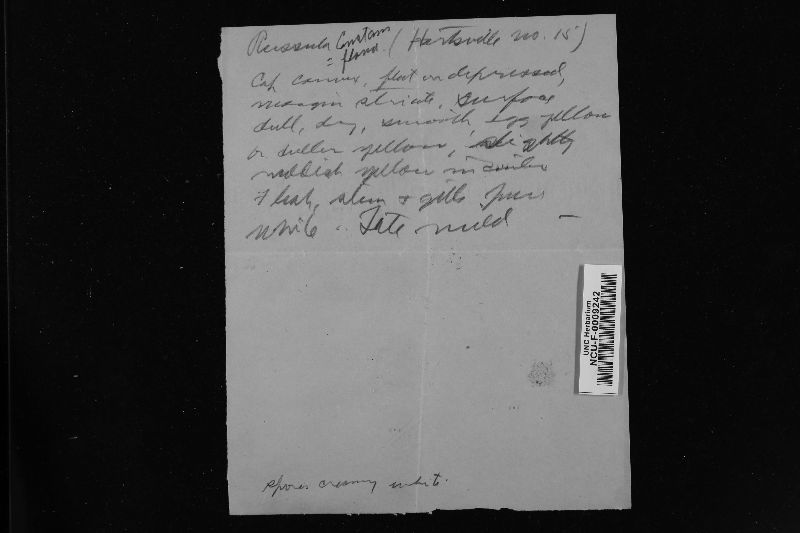 Russula (Hartsville no. 15)
= flava.
Cap convex, flat or depressed,
margin striate, surface
dull, dry, smooth egg yellow
or duller yellow, slightly
reddish yellow in center
Flesh, stem & gills pure
white. Taste mild —
UNC Herbarium
NCU-F-0009242
Spores creamy white.